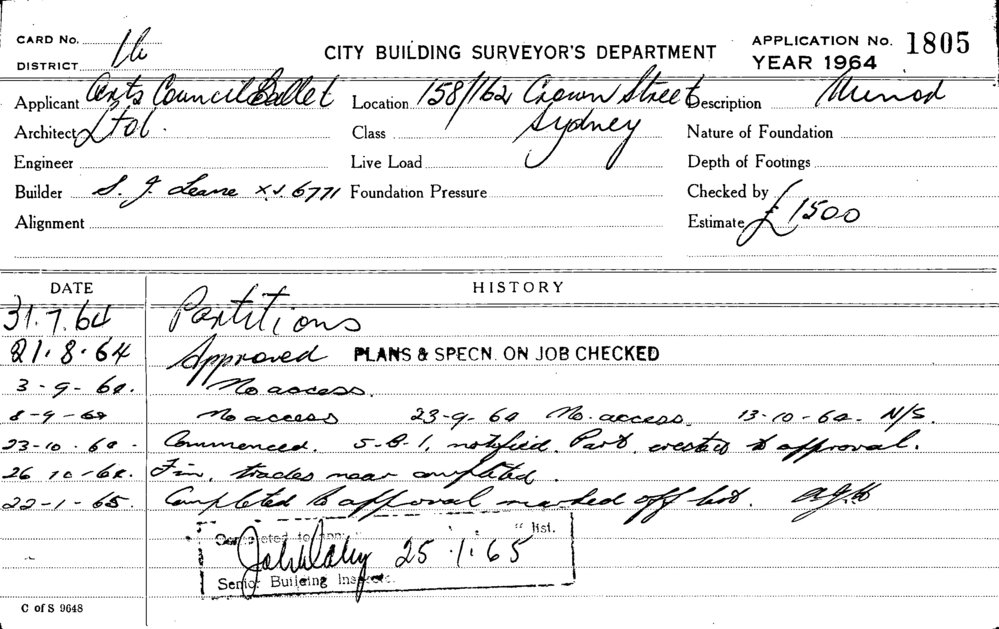 CARD No. 16
DISTRICT
CITY BUILDING SURVEYOR'S DEPARTMENT
APPLICATION No. 1805
YEAR 1964
Applicant Arts Council Ballet Location 158/162 Crown Street Description Minor
Architect Ltd. Class Sydney Nature of Foundation
Engineer Live Load Depth of Footings
Builder S. J. Leane XJ. 6771 Foundation Pressure Checked by
Alignment Estimate £1500
DATE HISTORY
31.7.64 Partitions
21.8.64 Approved PLANS & SPECN. ON JOB CHECKED
3-9-64. No access.
8-9-64 No access 23-9-64 No. access. 13-10-64- N/S.
23-10-64- Commenced. 5-B-1, notified. Part. erected to approval.
26 10-64. Fin, trades near completed.
22-1-65. Completed to approval marked off list.
Completed to " list.
25.1.65
Senior Building Inspector.
C of S 9648